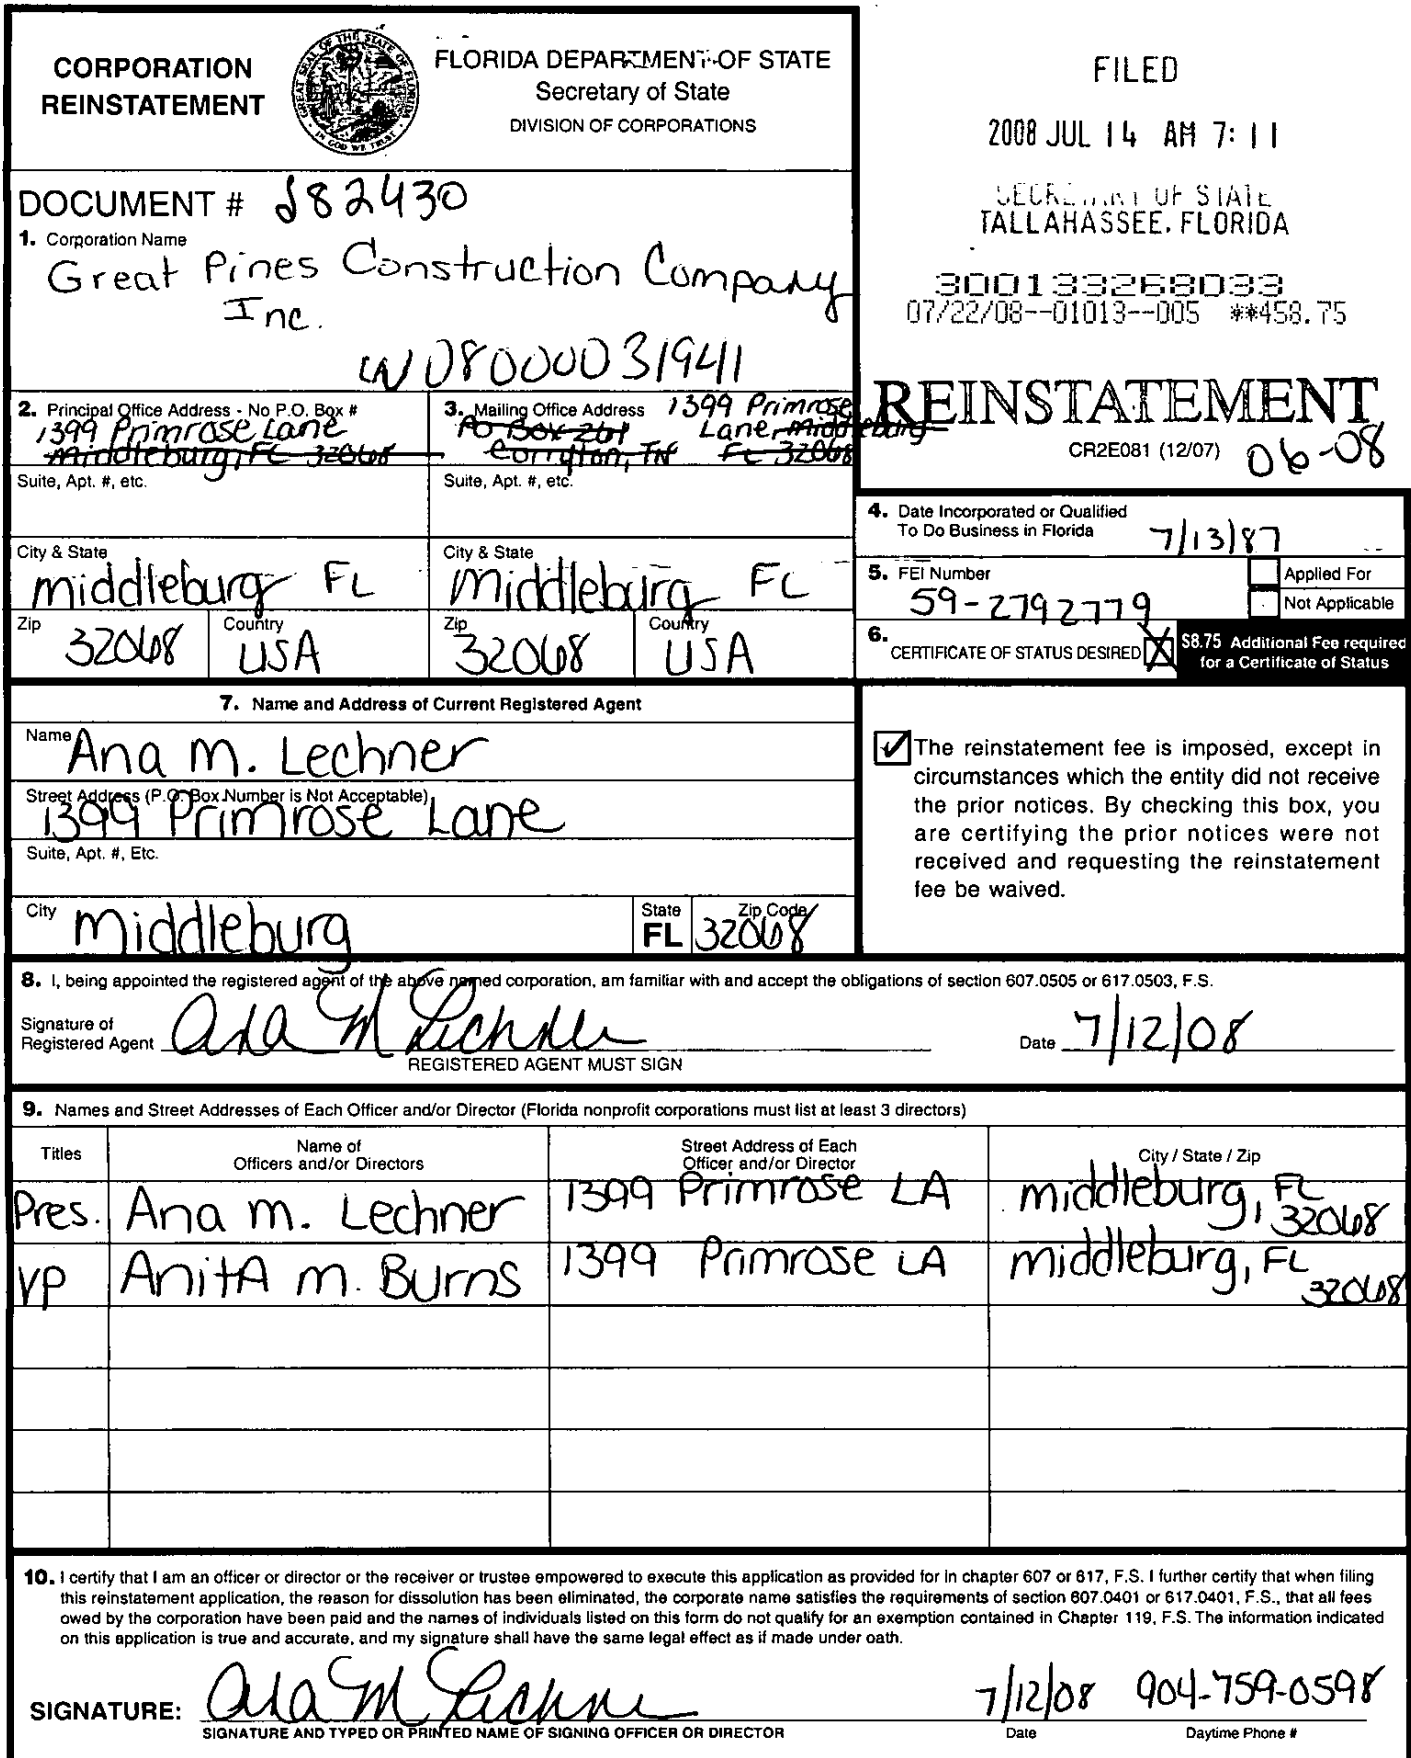 CORPORATION
REINSTATEMENT
GREAT SEAL OF THE STATE OF FLORIDA
IN GOD WE TRUST
FLORIDA DEPARTMENT OF STATE
Secretary of State
DIVISION OF CORPORATIONS
FILED
2008 JUL 14 AM 7:11
SECRETARY OF STATE
TALLAHASSEE, FLORIDA
300133268033
07/22/08--01013--005 **458.75
DOCUMENT # J82430
1. Corporation Name
Great Pines Construction Company
Inc.
W08000031941
REINSTATEMENT
CR2E081 (12/07) 06-08
2. Principal Office Address - No P.O. Box #
1399 Primrose Lane
Middleburg, FL 32068
Suite, Apt. #, etc.
City & State
middleburg FL
Zip
32068
Country
USA
3. Mailing Office Address 1399 Primrose
PO Box 261 Lane, Middleburg
Corryton, TN FL 32068
Suite, Apt. #, etc.
City & State
Middleburg FL
Zip
32068
Country
USA
4. Date Incorporated or Qualified
To Do Business in Florida 7/13/87
5. FEI Number
59-2792779
Applied For
Not Applicable
6. CERTIFICATE OF STATUS DESIRED X
$8.75 Additional Fee required
for a Certificate of Status
7. Name and Address of Current Registered Agent
Name Ana M. Lechner
Street Address (P.O. Box Number is Not Acceptable)
1399 Primrose Lane
Suite, Apt. #, Etc.
City Middleburg
State
FL
Zip Code
32068
The reinstatement fee is imposed, except in
circumstances which the entity did not receive
the prior notices. By checking this box, you
are certifying the prior notices were not
received and requesting the reinstatement
fee be waived.
8. I, being appointed the registered agent of the above named corporation, am familiar with and accept the obligations of section 607.0505 or 617.0503, F.S.
Signature of
Registered Agent Ana M Lechner
REGISTERED AGENT MUST SIGN
Date 7/12/08
9. Names and Street Addresses of Each Officer and/or Director (Florida nonprofit corporations must list at least 3 directors)
Titles
Name of
Officers and/or Directors
Street Address of Each
Officer and/or Director
City / State / Zip
Pres. Ana m. Lechner 1399 Primrose LA middleburg, FL 32068
VP AnitA m. Burns 1399 Primrose LA middleburg, FL 32068
10. I certify that I am an officer or director or the receiver or trustee empowered to execute this application as provided for in chapter 607 or 617, F.S. I further certify that when filing
this reinstatement application, the reason for dissolution has been eliminated, the corporate name satisfies the requirements of section 607.0401 or 617.0401, F.S., that all fees
owed by the corporation have been paid and the names of individuals listed on this form do not qualify for an exemption contained in Chapter 119, F.S. The information indicated
on this application is true and accurate, and my signature shall have the same legal effect as if made under oath.
SIGNATURE: Ana M Lechner 7/12/08 904-759-0598
SIGNATURE AND TYPED OR PRINTED NAME OF SIGNING OFFICER OR DIRECTOR
Date
Daytime Phone #